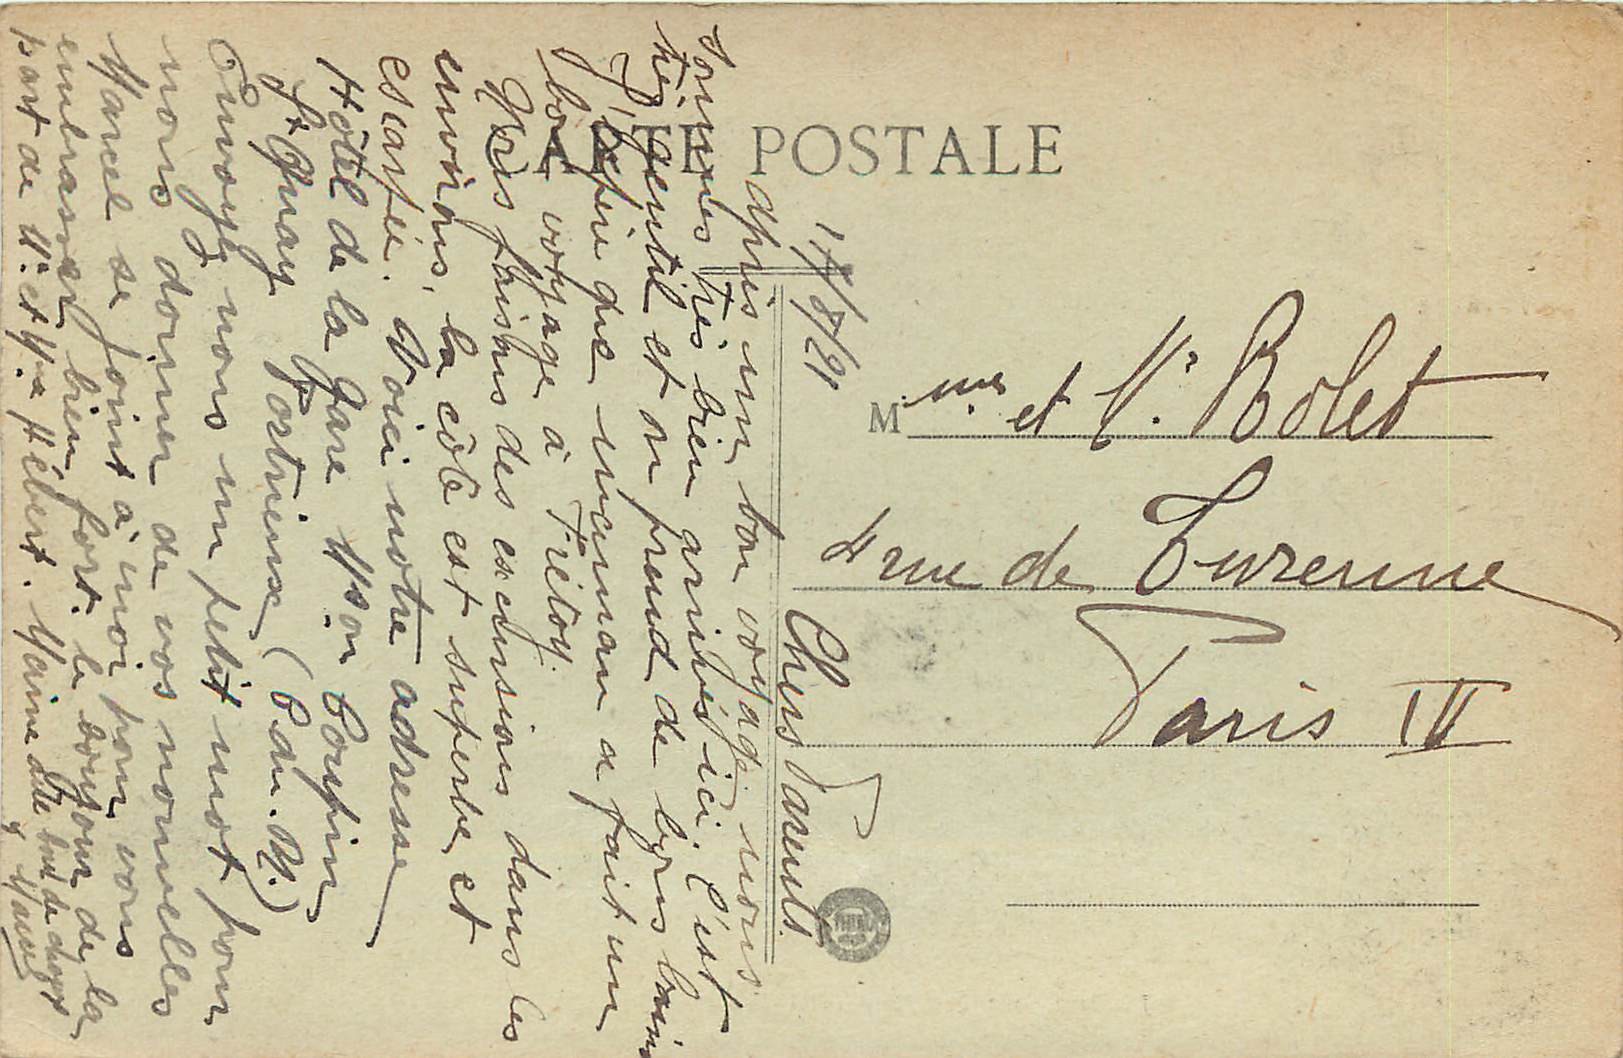 CARTE POSTALE
17/8/21
Mme et Mr. Bolet
4 rue de Turenne
Paris IV
Chers Parents.
Après un bon voyage nous
sommes très bien arrivés ici. C'est
très gentil et on prend de bons bains
J'espère que maman a fait un
bon voyage à Frétoy.
Nous faisons des excursions dans les
environs, la côte est superbe et
escarpée. Voici notre adresse
Hôtel de la Gare Mson Coupin
St Quay Portrieux (C. du. N.)
Envoyez nous un petit mot pour
nous donner de vos nouvelles
Marcel se joint à moi pour vous
embrasser bien fort. le bonjour de la
part de Mr. et Mme Hébert. Maine